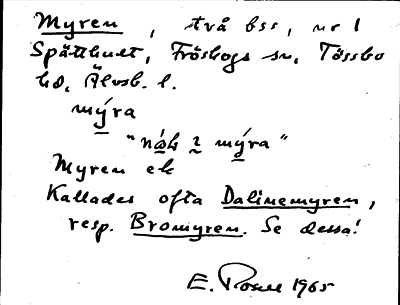 Myren, två bss, nr 1
Spätthult, Fröskogs sn, Tössbo
hd, Älvsb. l.
mýra
"nåk i mýra"
Myren ek
Kallades ofta Dalinemyren,
resp. Bromyren. Se dessa!
E. 1965